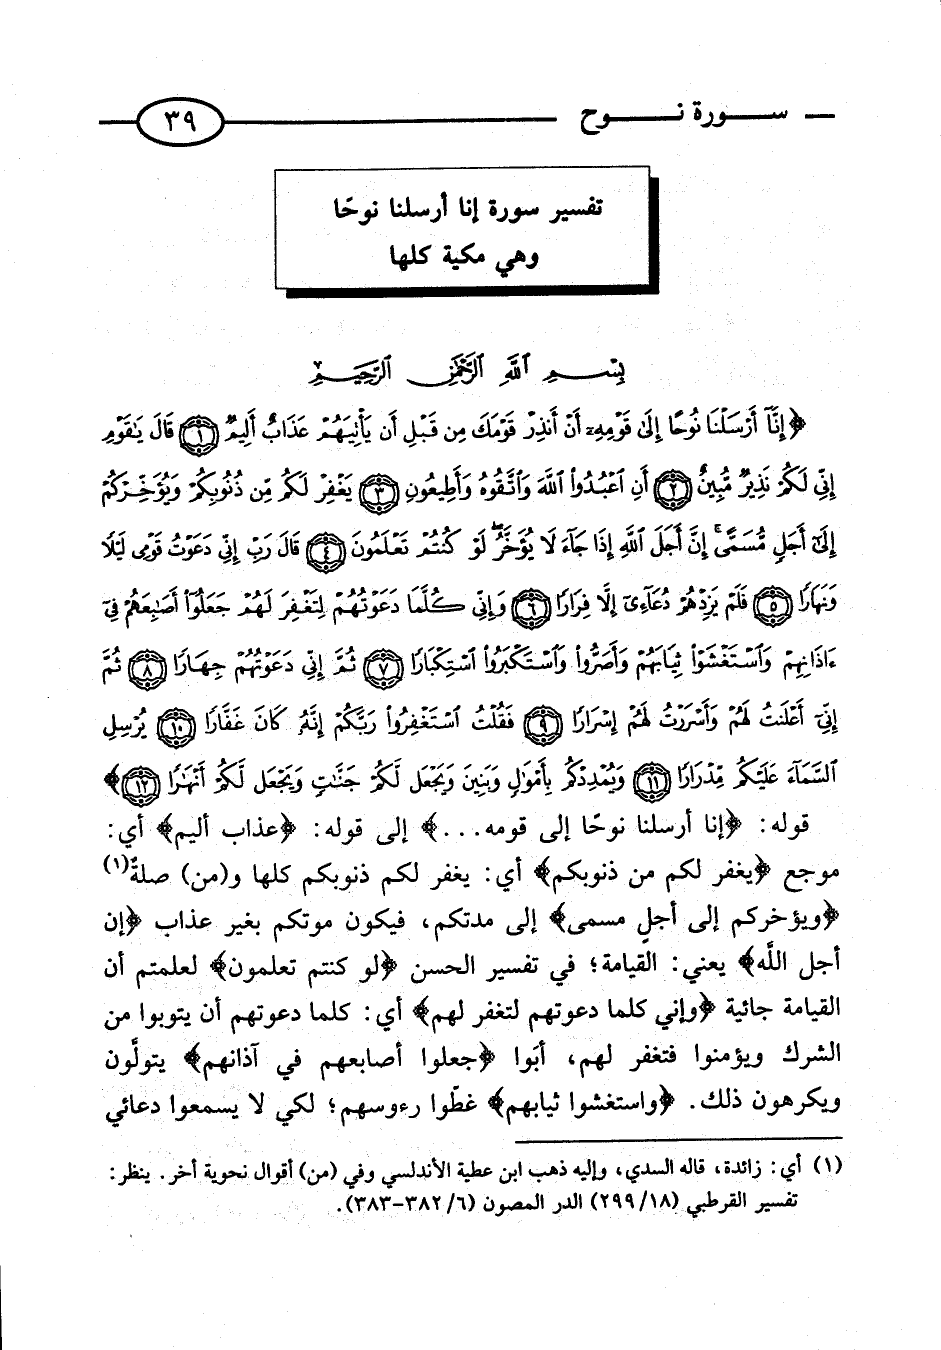 سورة نوح
٣٩
تفسير سورة إنا أرسلنا نوحًا
وهي مكية كلها
بِسْمِ ٱللَّهِ ٱلرَّحْمَٰنِ ٱلرَّحِيمِ
﴿إِنَّآ أَرْسَلْنَا نُوحًا إِلَىٰ قَوْمِهِۦٓ أَنْ أَنذِرْ قَوْمَكَ مِن قَبْلِ أَن يَأْنِيَهُمْ عَذَابٌ أَلِيمٌ ۝١ قَالَ يَٰقَوْمِ
إِنِّي لَكُمْ نَذِيرٌ مُّبِينٌ ۝٢ أَنِ ٱعْبُدُوا۟ ٱللَّهَ وَٱتَّقُوهُ وَأَطِيعُونِ ۝٣ يَغْفِرْ لَكُم مِّن ذُنُوبِكُمْ وَيُؤَخِّرْكُمْ
إِلَىٰٓ أَجَلٍ مُّسَمًّى ۚ إِنَّ أَجَلَ ٱللَّهِ إِذَا جَآءَ لَا يُؤَخَّرُ ۖ لَوْ كُنتُمْ تَعْلَمُونَ ۝٤ قَالَ رَبِّ إِنِّي دَعَوْتُ قَوْمِي لَيْلًا
وَنَهَارًا ۝٥ فَلَمْ يَزِدْهُمْ دُعَآءِىٓ إِلَّا فِرَارًا ۝٦ وَإِنِّي كُلَّمَا دَعَوْتُهُمْ لِتَغْفِرَ لَهُمْ جَعَلُوٓا۟ أَصَٰبِعَهُمْ فِيٓ
ءَاذَانِهِمْ وَٱسْتَغْشَوْا۟ ثِيَابَهُمْ وَأَصَرُّوا۟ وَٱسْتَكْبَرُوا۟ ٱسْتِكْبَارًا ۝٧ ثُمَّ إِنِّي دَعَوْتُهُمْ جِهَارًا ۝٨ ثُمَّ
إِنِّيٓ أَعْلَنتُ لَهُمْ وَأَسْرَرْتُ لَهُمْ إِسْرَارًا ۝٩ فَقُلْتُ ٱسْتَغْفِرُوا۟ رَبَّكُمْ إِنَّهُۥ كَانَ غَفَّارًا ۝١٠ يُرْسِلِ
ٱلسَّمَآءَ عَلَيْكُم مِّدْرَارًا ۝١١ وَيُمْدِدْكُم بِأَمْوَٰلٍ وَبَنِينَ وَيَجْعَل لَّكُمْ جَنَّٰتٍ وَيَجْعَل لَّكُمْ أَنْهَٰرًا ۝١٢﴾
قوله: ﴿إنا أرسلنا نوحًا إلى قومه...﴾ إلى قوله: ﴿عذاب أليم﴾ أي:
موجع ﴿يغفر لكم من ذنوبكم﴾ أي: يغفر لكم ذنوبكم كلها و(من) صلةٌ(١)
﴿ويؤخركم إلى أجلٍ مسمى﴾ إلى مدتكم، فيكون موتكم بغير عذاب ﴿إن
أجل اللَّه﴾ يعني: القيامة؛ في تفسير الحسن ﴿لو كنتم تعلمون﴾ لعلمتم أن
القيامة جائية ﴿وإني كلما دعوتهم لتغفر لهم﴾ أي: كلما دعوتهم أن يتوبوا من
الشرك ويؤمنوا فتغفر لهم، أبَوا ﴿جعلوا أصابعهم في آذانهم﴾ يتولَّون
ويكرهون ذلك. ﴿واستغشوا ثيابهم﴾ غطّوا رءوسهم؛ لكي لا يسمعوا دعائي
(١) أي: زائدة، قاله السدي، وإليه ذهب ابن عطية الأندلسي وفي (من) أقوال نحوية أخر. ينظر:
تفسير القرطبي (١٨/ ٢٩٩) الدر المصون (٦/ ٣٨٢-٣٨٣).